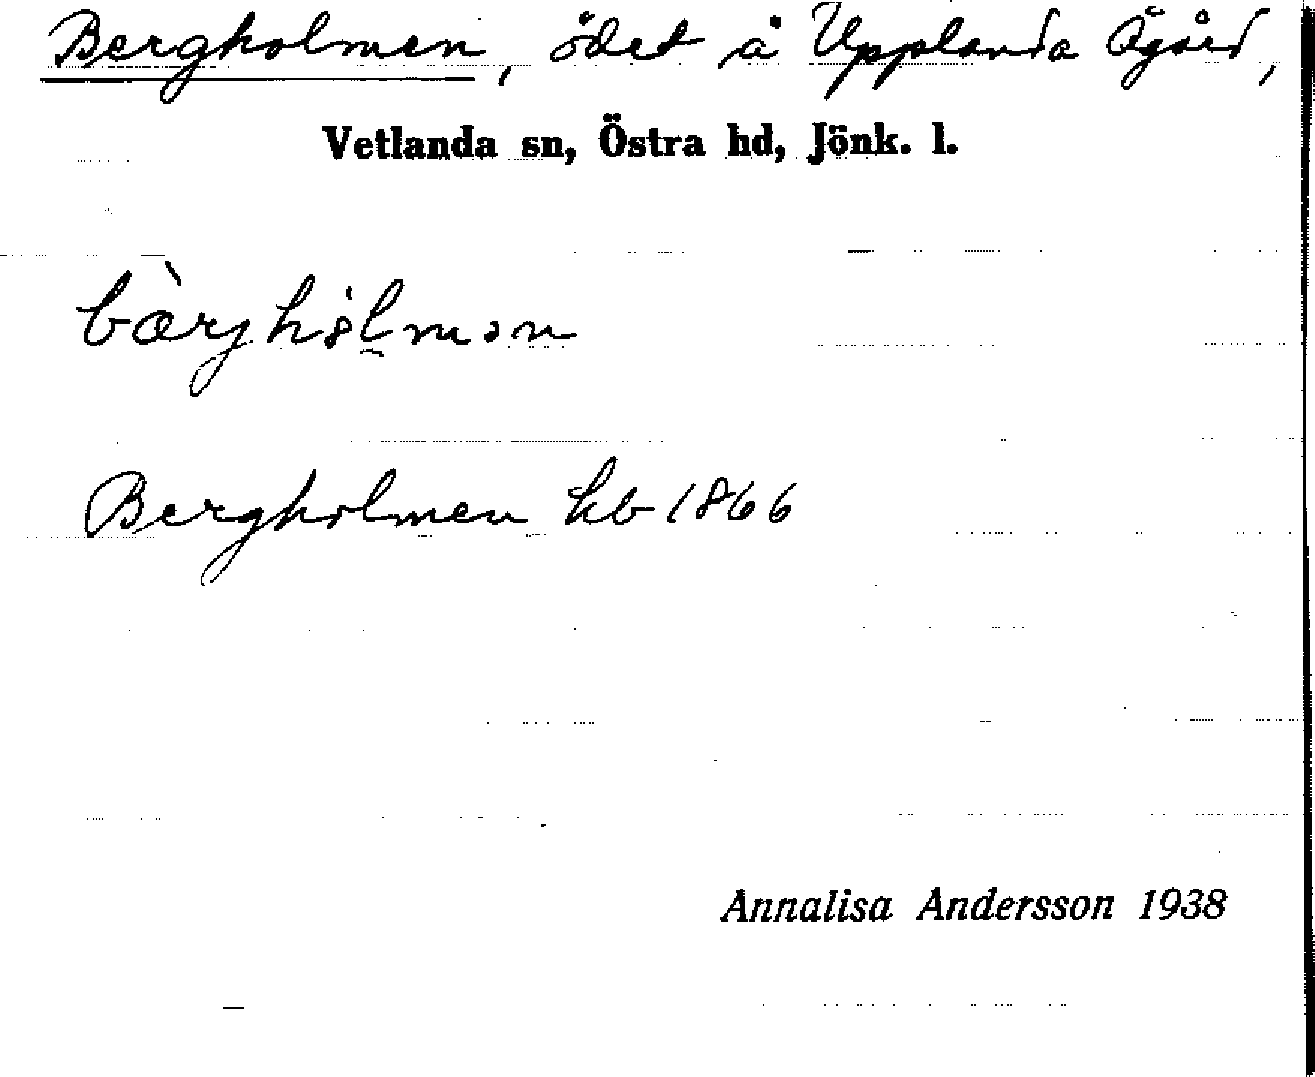 Bergholmen, ödet å Upplanda Ågård,
Vetlanda sn, Östra hd, Jönk. l.
bærjhålmən
Bergholmen hb 1866
Annalisa Andersson 1938